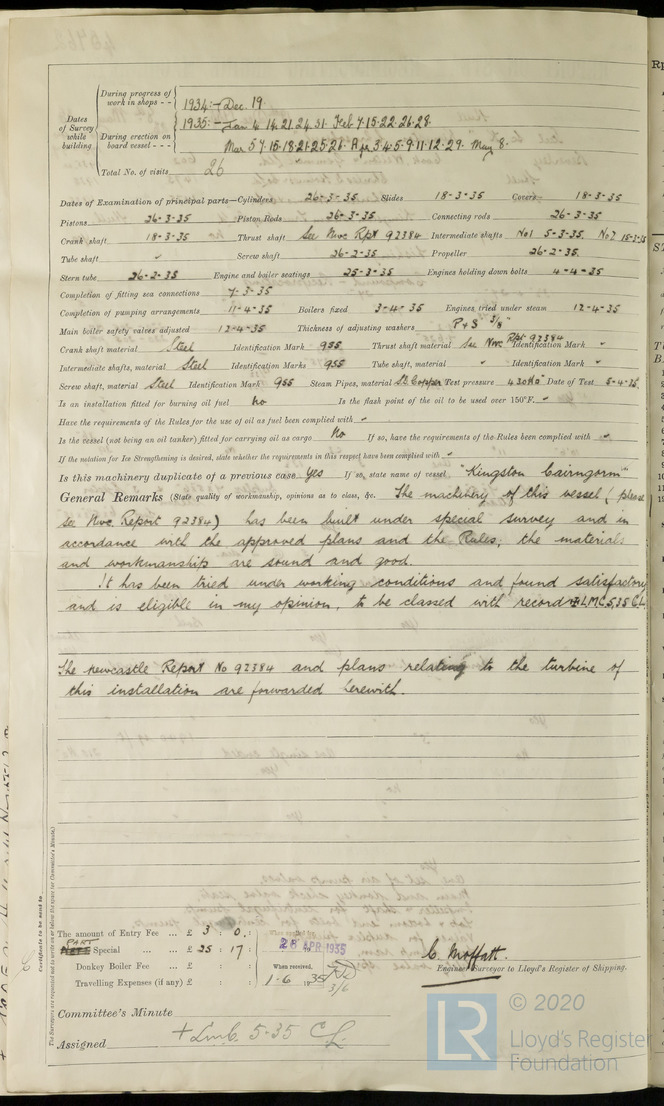 During progress of work in shops - - 1934:- Dec. 19.
1935:- Jan 4. 14. 21. 24. 31. Feb 7. 15. 22. 26. 28.
Dates of Survey while building
During erection on board vessel - - - Mar 5 7. 15. 18. 21. 25. 26. Apr 3. 4. 5. 9. 11. 12. 29. May 8.
Total No. of visits 26
Dates of Examination of principal parts—Cylinders 26-3-35 Slides 18-3-35 Covers 18-3-35
Pistons 26-3-35 Piston Rods 26-3-35 Connecting rods 26-3-35
Crank shaft 18-3-35 Thrust shaft See Nwc Rpt 92384 Intermediate shafts No1 5-3-35. No2 15-3-35
Tube shaft " Screw shaft 26-2-35 Propeller 26-2-35.
Stern tube 26-2-35 Engine and boiler seatings 25-3-35 Engines holding down bolts 4-4-35
Completion of fitting sea connections 7-3-35
Completion of pumping arrangements 11-4-35 Boilers fixed 3-4-35 Engines tried under steam 12-4-35
Main boiler safety valves adjusted 12-4-35 Thickness of adjusting washers P & S 3/8"
Crank shaft material Steel Identification Mark 955 Thrust shaft material See Nwc Rpt 92384 Identification Mark "
Intermediate shafts, material Steel Identification Marks 955 Tube shaft, material " Identification Mark "
Screw shaft, material Steel Identification Mark 955 Steam Pipes, material Sd. Copper Test pressure 430 lbs □" Date of Test 5-4-35.
Is an installation fitted for burning oil fuel No Is the flash point of the oil to be used over 150°F. ✓
Have the requirements of the Rules for the use of oil as fuel been complied with ✓
Is the vessel (not being an oil tanker) fitted for carrying oil as cargo No If so, have the requirements of the Rules been complied with ✓
If the notation for Ice Strengthening is desired, state whether the requirements in this respect have been complied with ✓
Is this machinery duplicate of a previous case Yes If so, state name of vessel "Kingston Cairngorm"
General Remarks (State quality of workmanship, opinions as to class, &c. The machinery of this vessel (please
see Nwc. Report 92384) has been built under special survey and in
accordance with the approved plans and the Rules, the materials
and workmanship are sound and good.
It has been tried under working conditions and found satisfactory
and is eligible in my opinion, to be classed with record +LMC 5,35 CL
The Newcastle Report No 92384 and plans relating to the turbine of
this installation are forwarded herewith.
Certificate to be sent to
The Surveyors are requested not to write on or below the space for Committee's Minute.
The amount of Entry Fee ... £ 3 : 0 :
PART
Special ... ... £ 25 : 17 : 26 APR 1935
Donkey Boiler Fee ... £ : : When received,
Travelling Expenses (if any) £ : : 1-6 1935
3/6
C. Moffatt.
Engineer Surveyor to Lloyd's Register of Shipping.
Committee's Minute
Assigned + Lmb. 5-35 CL.
LR
© 2020
Lloyd's Register
Foundation